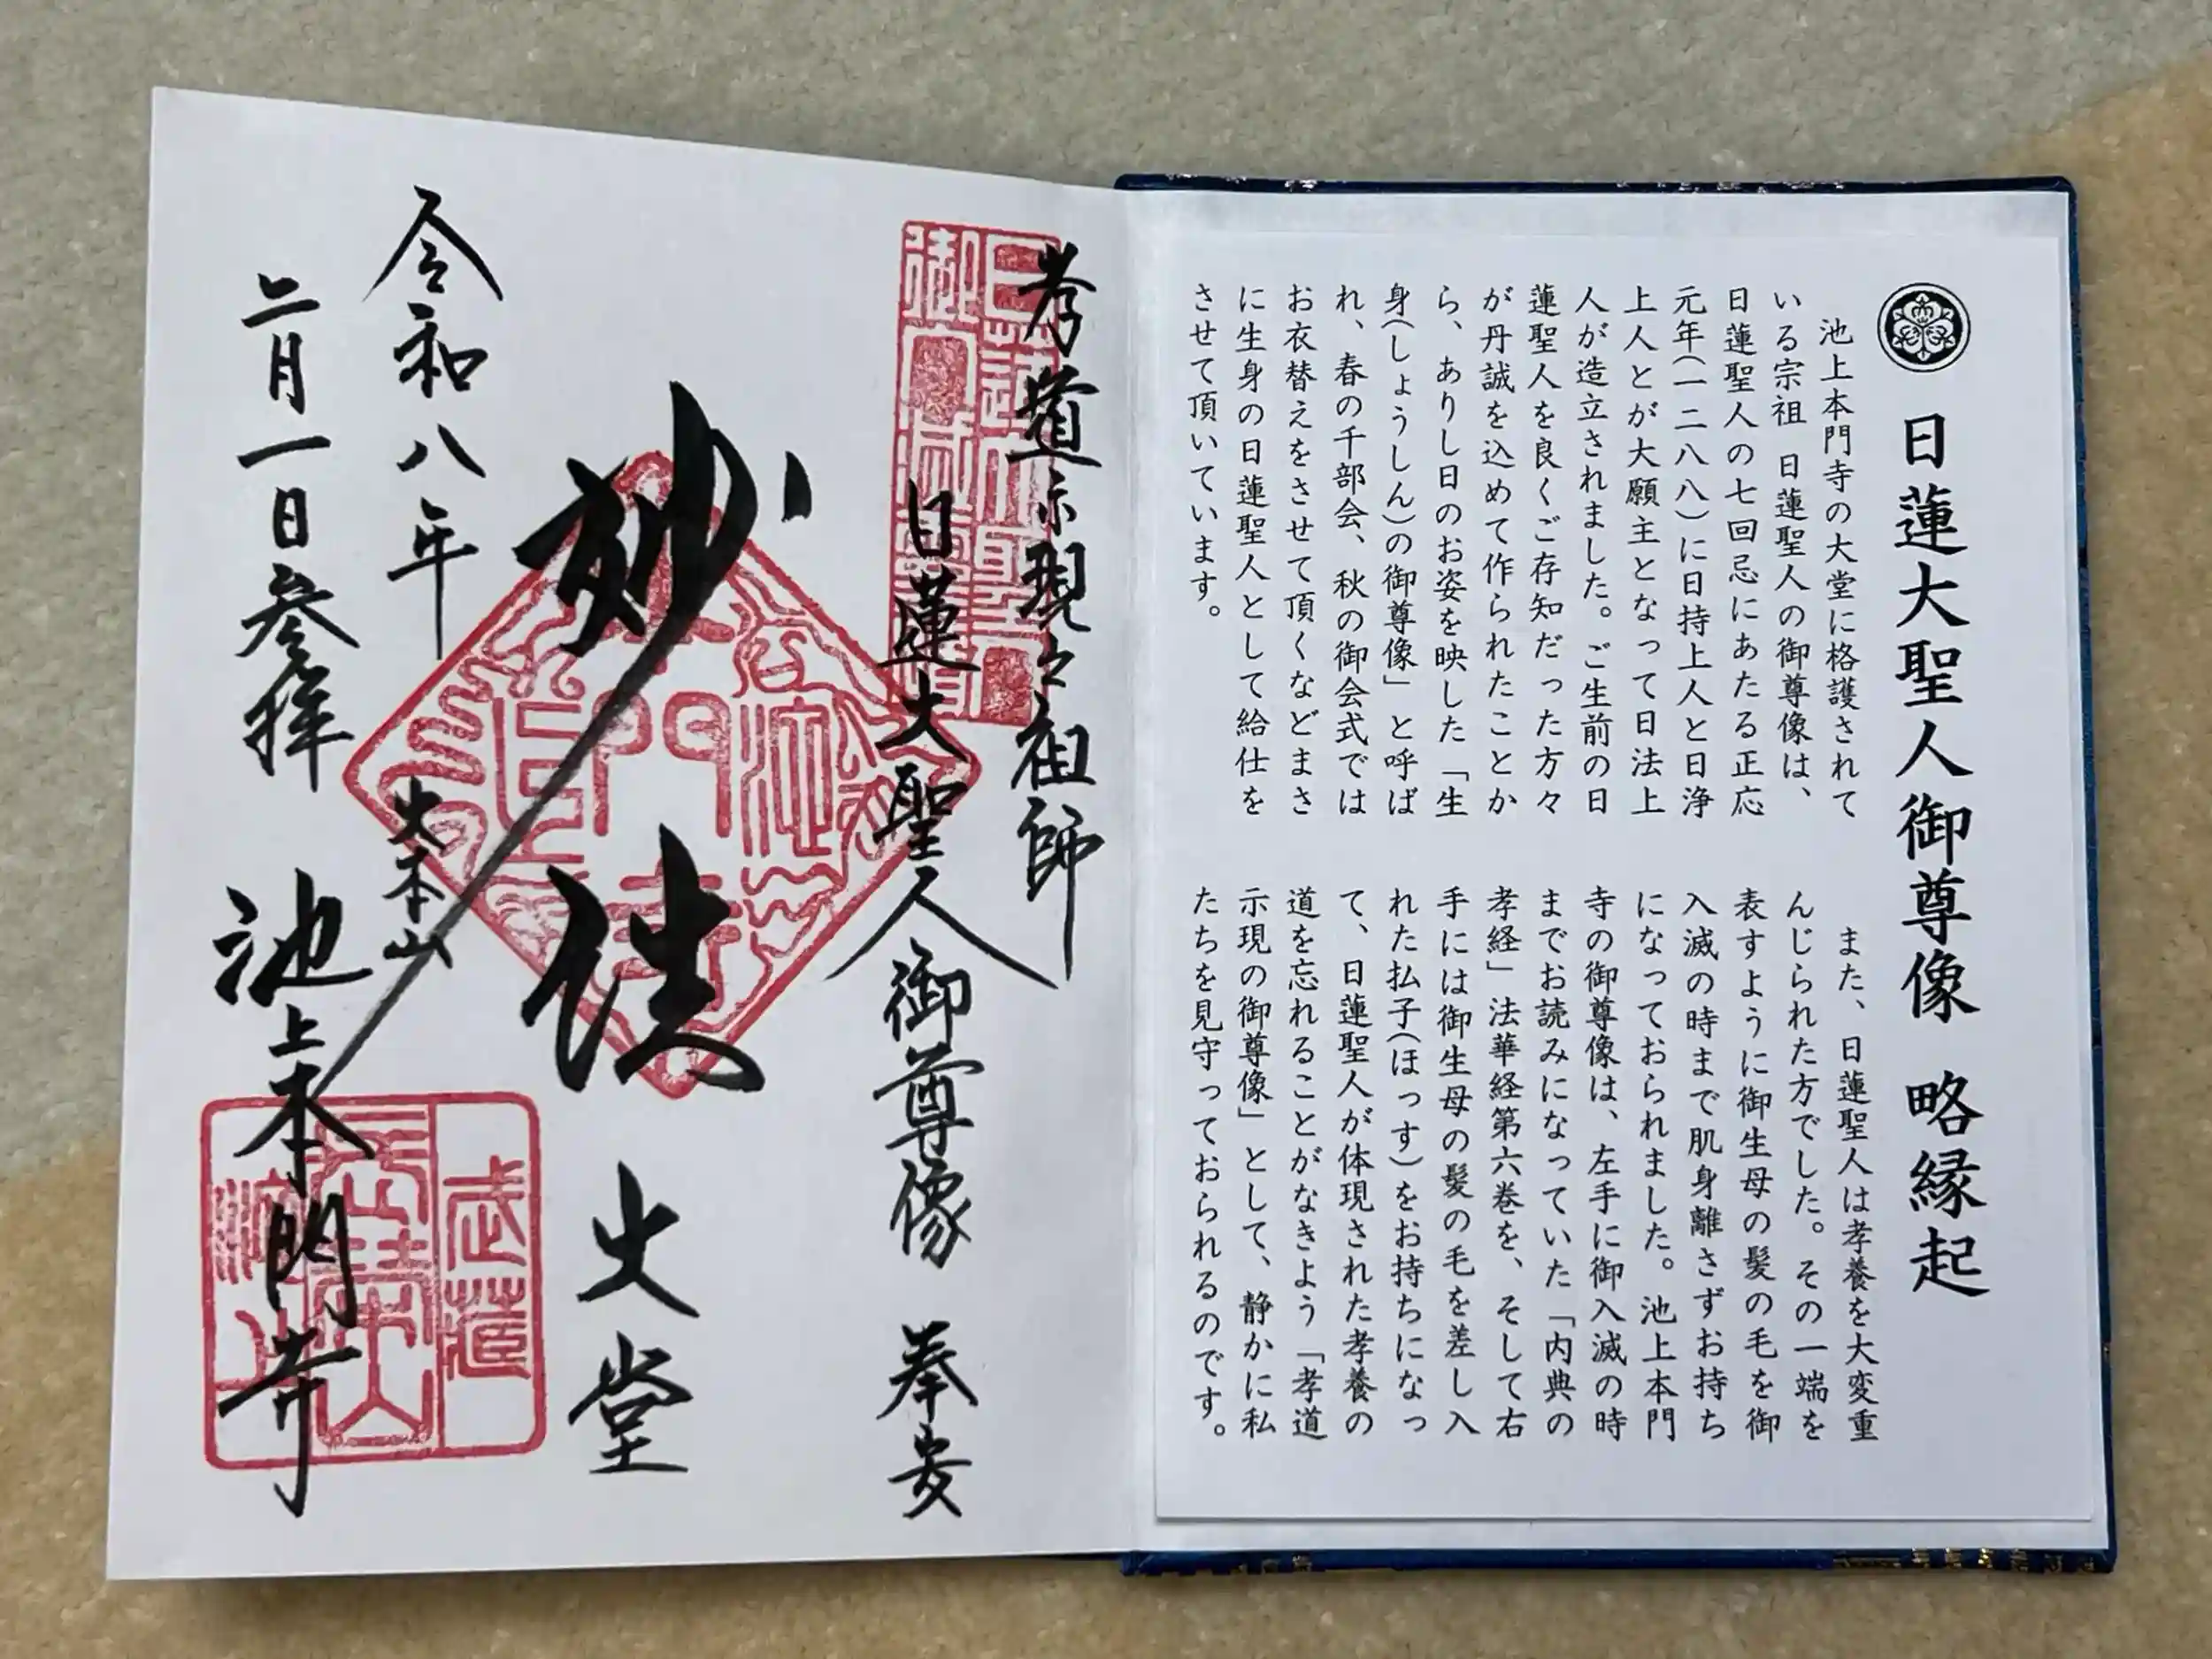 日蓮大聖人御尊像　略縁起
池上本門寺の大堂に格護されて
いる宗祖 日蓮聖人の御尊像は、
日蓮聖人の七回忌にあたる正応
元年(一二八八)に日持上人と日浄
上人とが大願主となって日法上
人が造立されました。ご生前の日
蓮聖人を良くご存知だった方々
が丹誠を込めて作られたことか
ら、ありし日のお姿を映した「生
身(しょうしん)の御尊像」と呼ば
れ、春の千部会、秋の御会式では
お衣替えをさせて頂くなどまさ
に生身の日蓮聖人として給仕を
させて頂いています。
また、日蓮聖人は孝養を大変重
んじられた方でした。その一端を
表すように御生母の髪の毛を御
入滅の時まで肌身離さずお持ち
になっておられました。池上本門
寺の御尊像は、左手に御入滅の時
までお読みになっていた「内典の
孝経」法華経第六巻を、そして右
手には御生母の髪の毛を差し入
れた払子(ほっす)をお持ちになっ
て、日蓮聖人が体現された孝養の
道を忘れることがなきよう「孝道
示現の御尊像」として、静かに私
たちを見守っておられるのです。
孝道示現之祖師
日蓮大聖人御尊像 奉安
妙法
大堂
令和八年
大本山
二月一日参拝
池上本門寺